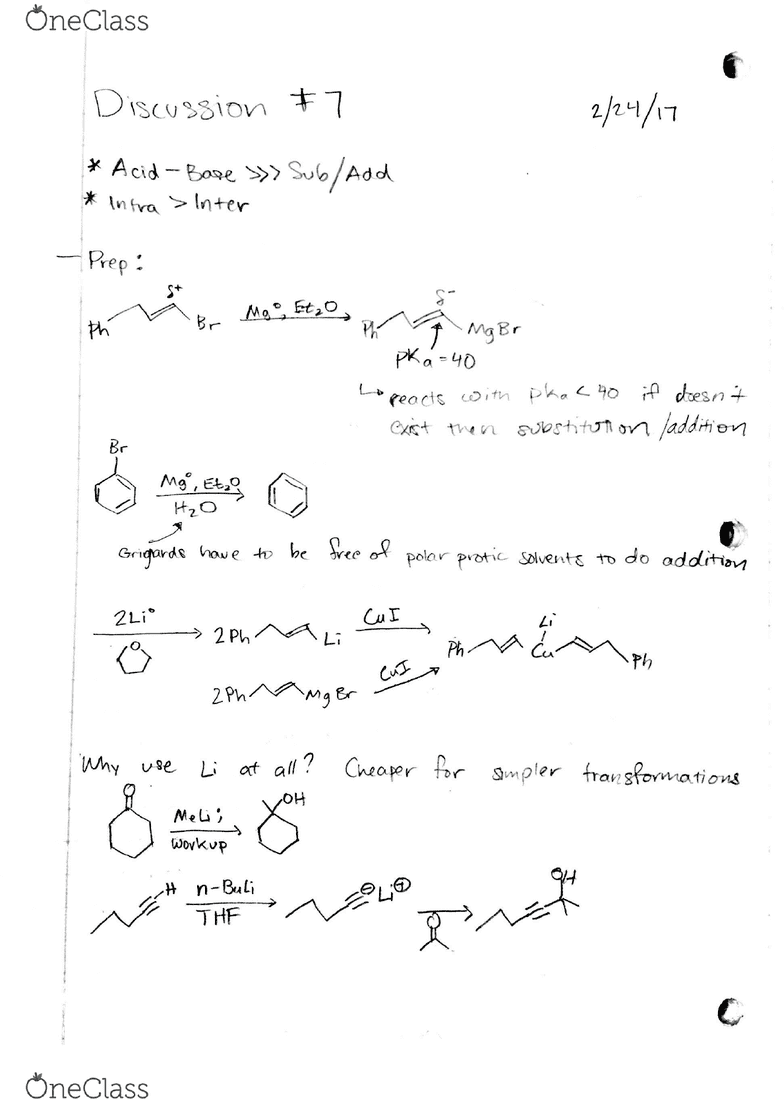 OneClass
Discussion #7 2/24/17
* Acid-Base >>> Sub/Add
* Intra > Inter
— Prep:
δ+ δ-
Ph Br Mg°, Et₂O Ph MgBr
pKa = 40
↳ reacts with pka < 40 if doesn't
exist then substitution/addition
Br
Mg°, Et₂O
H₂O
Grigards have to be free of polar protic solvents to do addition
2Li° 2Ph Li CuI Li
O Ph Cu Ph
2Ph MgBr CuI
Why use Li at all? Cheaper for simpler transformations
O MeLi; OH
workup
H n-BuLi ⊖ Li⊕ OH
THF O
OneClass